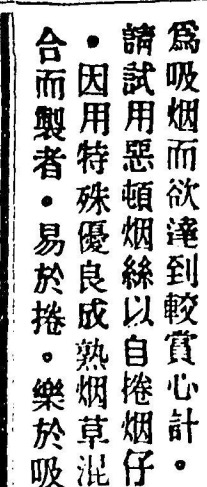 爲吸烟而欲達到較賞心計。
請試用惡頓烟絲以自捲烟仔
。因用特殊優良成熟烟草混
合而製者。易於捲。樂於吸